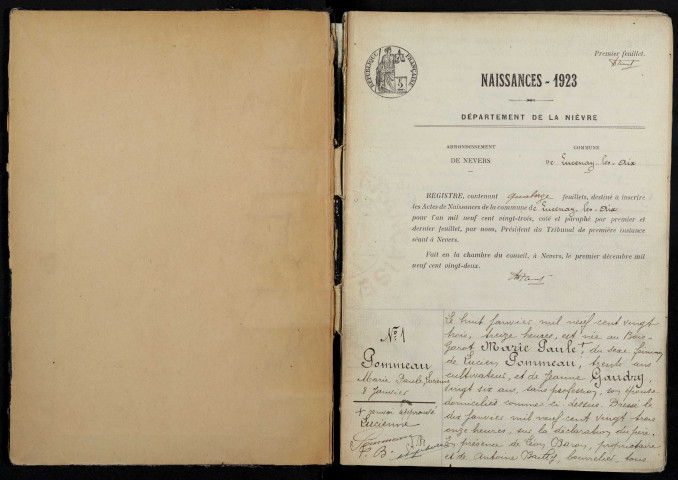 Premier feuillet.
RÉPUBLIQUE FRANÇAISE
NAISSANCES - 1923
DÉPARTEMENT DE LA NIÈVRE
ARRONDISSEMENT
DE NEVERS
COMMUNE
DE Lucenay-les-Aix
REGISTRE, contenant quatorze feuillets, destiné à inscrire
les Actes de Naissances de la commune de Lucenay-les-Aix
pour l'an mil neuf cent vingt-trois, coté et paraphé par premier et
dernier feuillet, par nous, Président du Tribunal de première instance
séant à Nevers.
Fait en la chambre du conseil, à Nevers, le premier décembre mil
neuf cent vingt-deux.
N° 1
Pommeau
Marie Paule Lucienne
8 Janvier
+ renvoi approuvé
Lucienne
Le huit Janvier mil neuf cent vingt
trois, treize heures, est née au Bois-
Garot Marie Paule +, du sexe féminin
de Lucien Pommeau, trente ans
cultivateur, et de Jeanne Gaudry,
vingt six ans, sans profession, son épouse
domiciliés comme ci dessus. Dressé le
dix Janvier mil neuf cent vingt trois
onze heures, sur la déclaration du père.
En présence de Léon Baron, propriétaire
et de Antoine bourrelier, tous